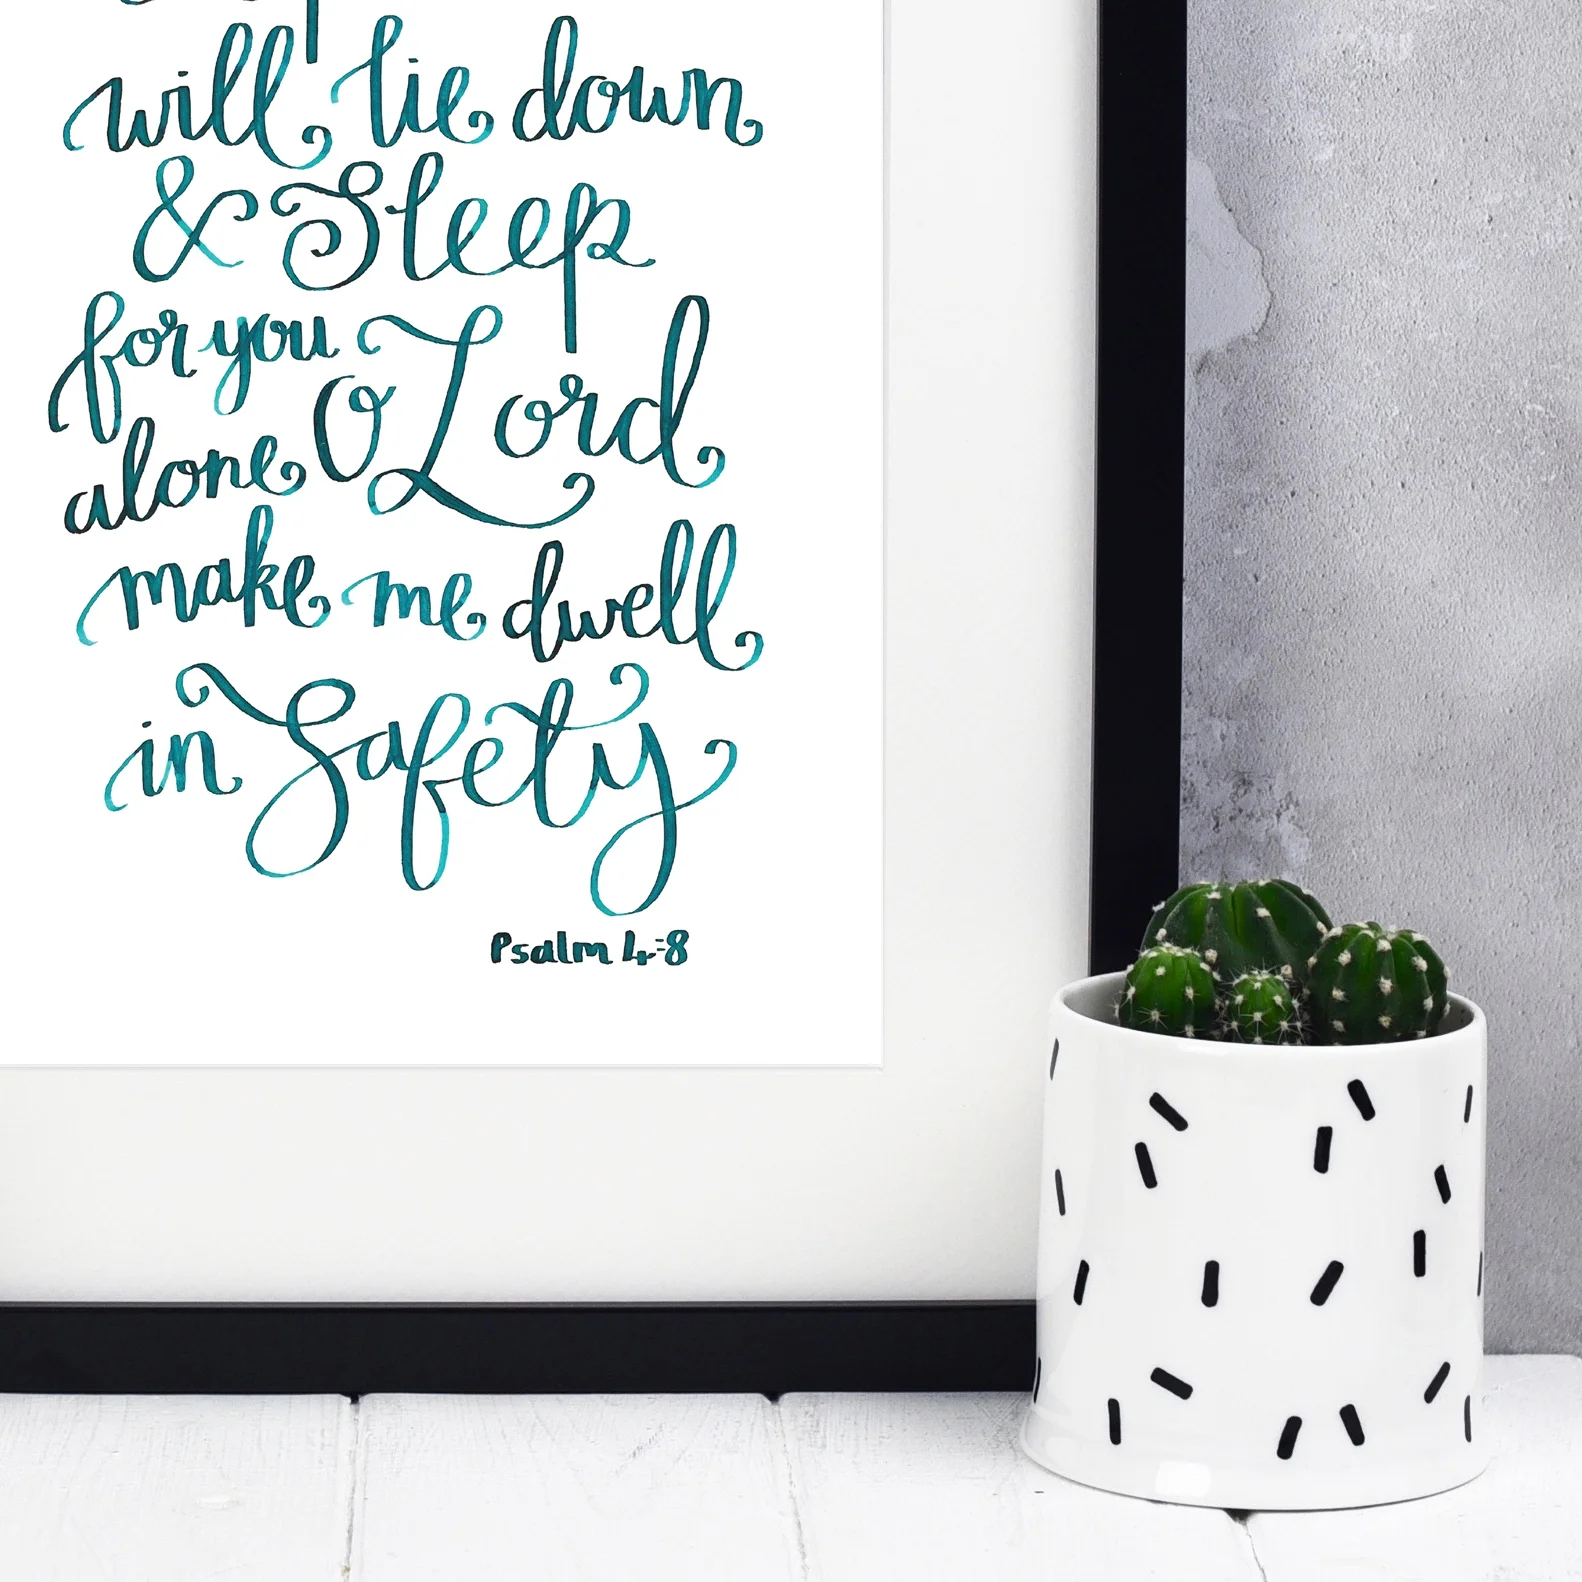 will lie down
& Sleep
for you
alone O Lord
make me dwell
in Safety
Psalm 4:8